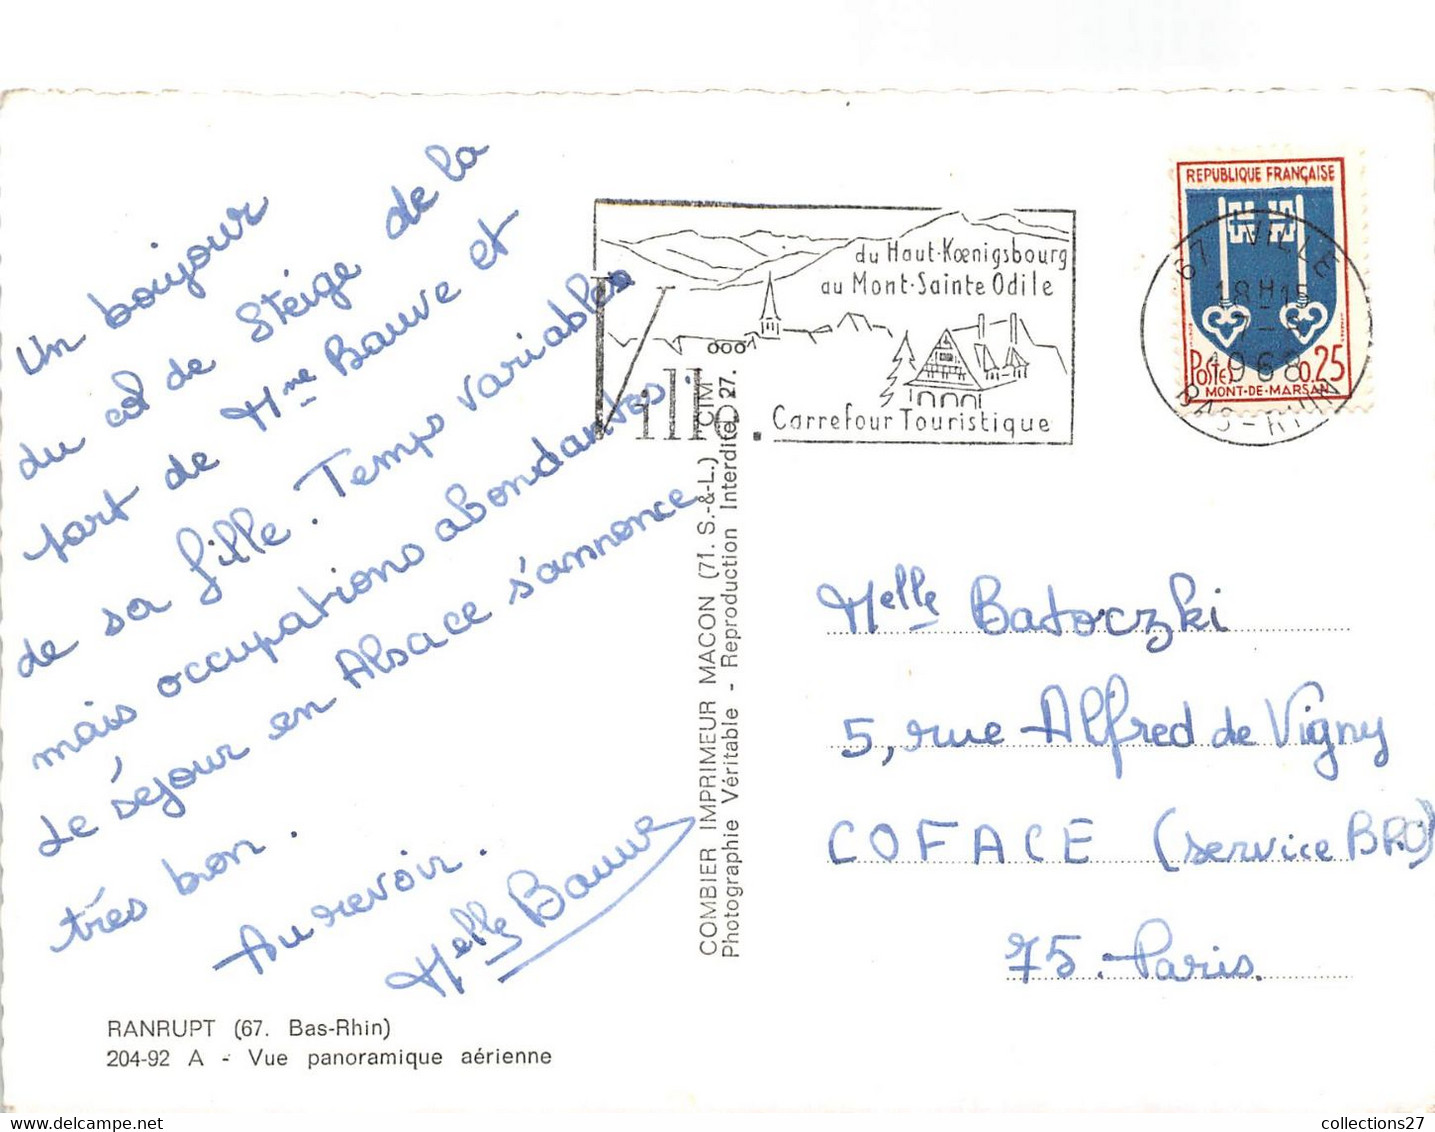 Un bonjour
du col de Steige de la
part de Mme Bauve et
de sa fille. Temps variables
mais occupations abondantes.
Le séjour en Alsace s'annonce
très bon.
Au revoir.
Melle Bauve
RANRUPT (67. Bas-Rhin)
204-92 A - Vue panoramique aérienne
COMBIER IMPRIMEUR MACON (71. S.-&-L.) CIM
Photographie Véritable - Reproduction Interdite 27.
du Haut-Kœnigsbourg
au Mont-Sainte Odile
Villé.
Carrefour Touristique
REPUBLIQUE FRANÇAISE
Postes 0,25
MONT-DE-MARSAN
67 VILLE
18H15
1968
BAS-RHIN
Melle Batoczki
5, rue Alfred de Vigny
COFACE (service BPO)
75. Paris.
collections27